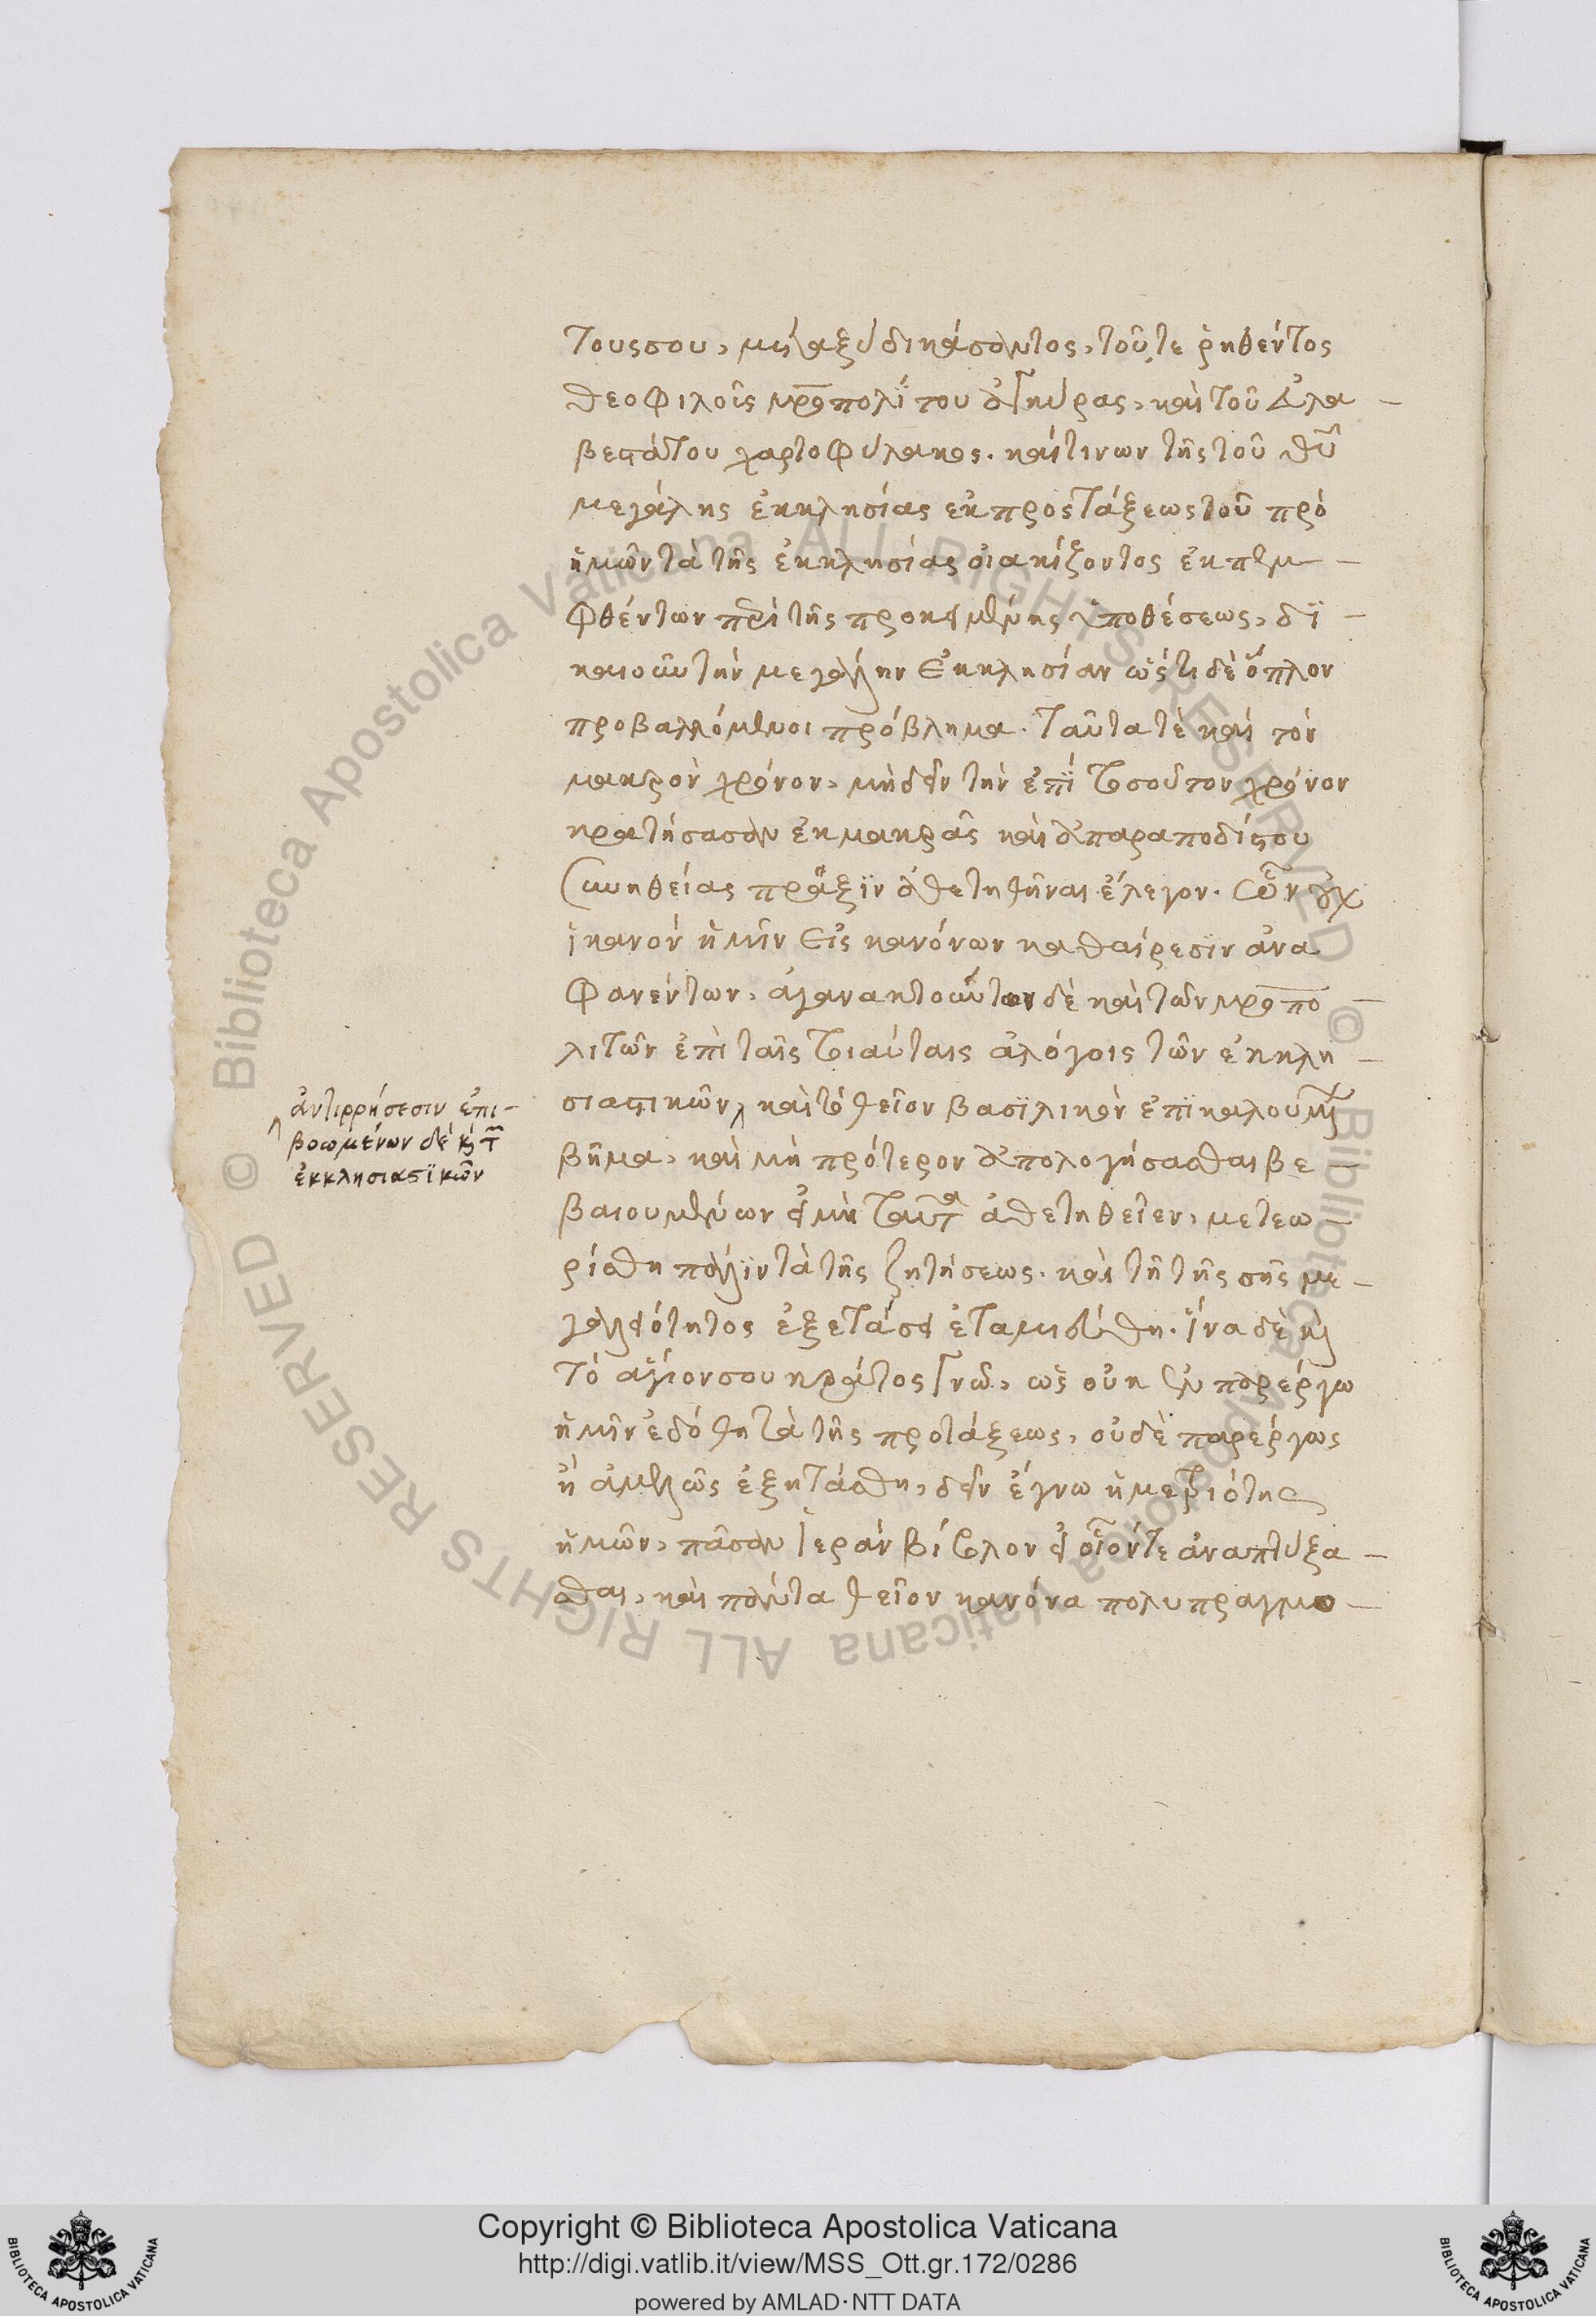 τους σου, μεταξὺ δικάσαντος, τοῦ τε ῥηθέντος
θεοφιλοῦς μροπολίτου ἀγκύρας, καὶ τοῦ εὐλα-
βεστάτου χαρτοφύλακος. καί τινων τῆς τοῦ θυ
μεγάλης ἐκκλησίας ἐκ προστάξεως τοῦ πρὸ
ἡμῶν τὰ τῆς ἐκκλησίας οἰακίζοντος ἐκπεμ-
φθέντων περὶ τῆς προκειμένης ὑποθέσεως, δϊ-
καιοῦν τὴν μεγάλην ἐκκλησίαν ὥς τι δὲ ὅπλον
προβαλλόμενοι πρόβλημα. ταῦτα τὲ καὶ τὸν
μακρὸν χρόνον, μὴ δεῖν τὴν ἐπὶ τοσοῦτον χρόνον
κρατήσασαν ἐκ μακρᾶς καὶ ἀπαραποδίστου
συνηθείας πρᾶξϊν ἀθετηθῆναι ἔλεγον. ὧν οὐχ
ἱκανὸν ἡμῖν εἰς κανόνων καθαίρεσϊν ἀνα
φανέντων, ἀγανακτούντων δὲ καὶ τῶν μροπο-
λιτῶν ἐπὶ ταῖς τοιαύταις ἀλόγοις τῶν ἐκκλη-
σιαστικῶν, καὶ τὸ θεῖον βασϊλικὸν ἐπϊκαλουμ
βῆμα, καὶ μὴ πρότερον ἀπολογήσασθαι βε-
βαιουμένων εἰ μὴ ταῦτα ἀθετηθεῖεν, μετεω-
ρίσθη πάλϊν τὰ τῆς ζητήσεως. καὶ τῇ τῆς σῆς με-
γαλειότητος ἐξετάσει ἐταμιεύθη. ἵνα δὲ καὶ
τὸ ἅγιόν σου κράτος γνῶ, ὡς οὐκ ἐν παρέργω
ἡμῖν ἐδόθη τὰ τῆς προτάξεως, οὐδὲ παρέργως
ἢ ἀμελῶς ἐξητάσθη, δεῖν ἔγνω ἡ μετριότης
ἡμῶν, πᾶσαν ἱερὰν βίβλον εἰ οἷόν τε ἀναπτύξα-
σθαι, καὶ πάντα θεῖον κανόνα πολυπραγμο-
ἀντιρρήσεσιν ἐπι-
βοωμένων δὲ καὶ τ
ἐκκλησιαστϊκῶν
Copyright © Biblioteca Apostolica Vaticana
http://digi.vatlib.it/view/MSS_Ott.gr.172/0286
powered by AMLAD·NTT DATA
© Biblioteca Apostolica Vaticana ALL RIGHTS RESERVED © Biblioteca Apostolica Vaticana ALL RIGHTS RESERVED
BIBLIOTECA APOSTOLICA VATICANA
BIBLIOTECA APOSTOLICA VATICANA